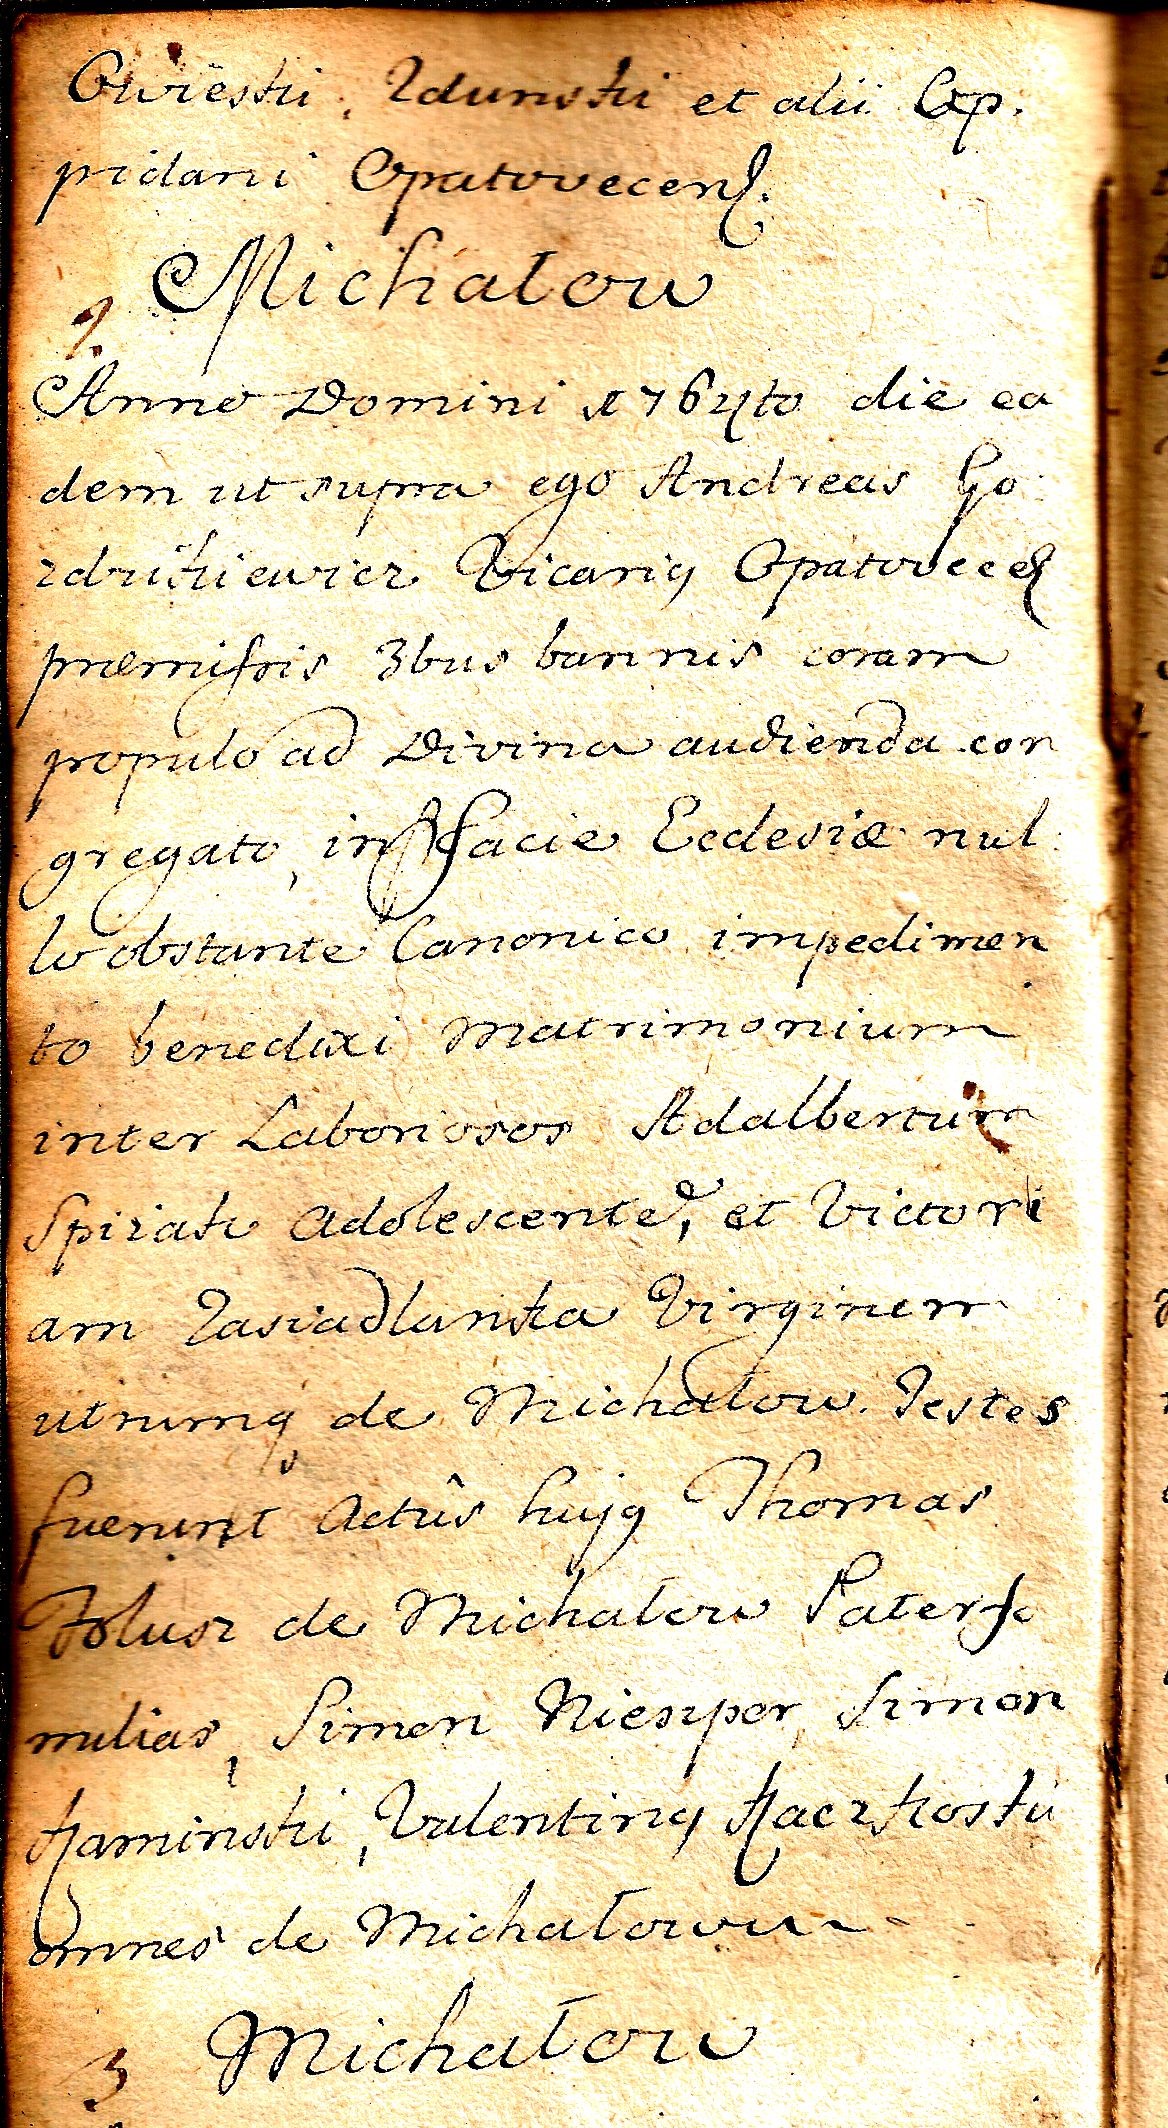 Owiestii, Zdunski et alii Op.
pidani Opatovecens.
Michałow
2.
Anno Domini 1764to die ea
dem ut supra ego Andreas Go
zdrikiewicz Vicariq Opatovece
præmissis 3bus bannis coram
populo ad Divina audienda con
gregato, in facie Ecclesiæ nul
lo obstante Canonico impedimen
to benedixi Matrimonium
inter Laboriosos Adalbertum
Spizak Adolescente, et Victori
am Zasiadlanka Virginem
utrumq de Michałow. Testes
fuerunt Actûs hujq Thomas
Folusz de Michałow Paterfa
milias, Simon Niezper, Simon
Kaminski, Valentinq Kaczkoski
omnes de Michałowa
3 Michałow